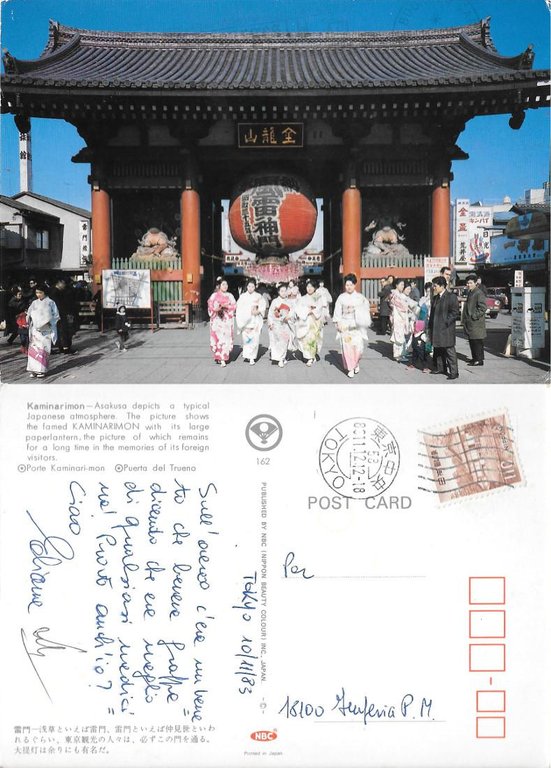 金龍山
雷神門
雷門
Kaminarimon—Asakusa depicts a typical
Japanese atmosphere. The picture shows
the famed KAMINARIMON with its large
paperlantern, the picture of which remains
for a long time in the memories of its foreign
visitors.
Porte Kaminari-mon Puerta del Trueno
162
PUBLISHED BY NBC (NIPPON BEAUTY COLOUR) INC., JAPAN
POST CARD
東京中央
TOKYO
Sull'aereo c'era un bene
dicendo che era meglio
di qualsiasi medici
na! Pronto anch'io?
Ciao
Tokyo 10/11/83
Per
18100 Imperia P.M.
雷門—浅草といえば雷門、雷門といえば仲見世といわ
れるぐらい、東京観光の人々は、必ずこの門を通る。
大提灯は余りにも有名だ。
NBC
Printed in Japan